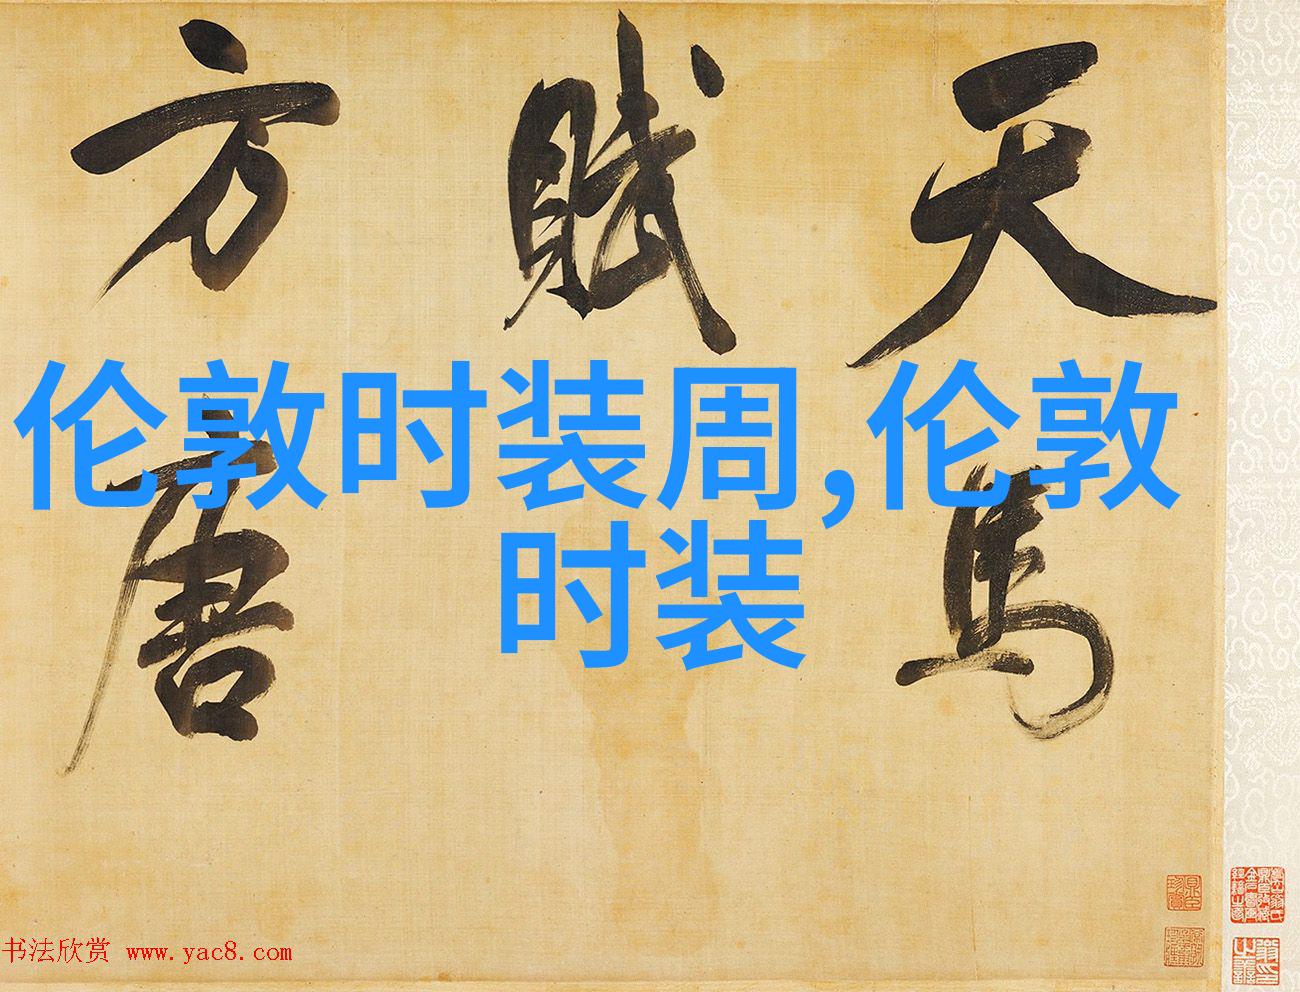 天馬
賦
方唐
伦敦时装周,伦敦
时装
书法欣赏 www.yac8.com